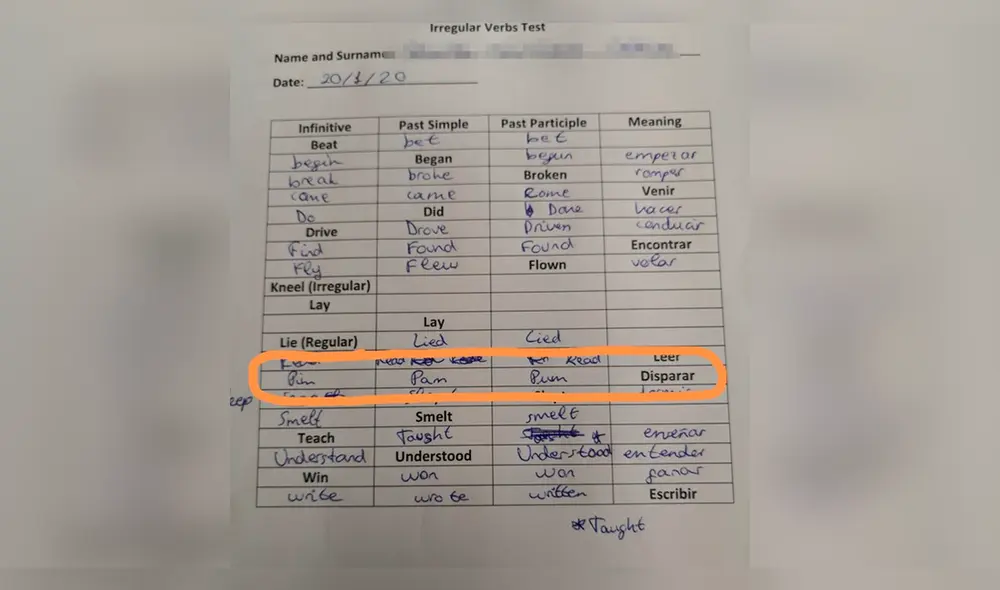 Irregular Verbs Test
Name and Surname
Date: 20/1/20
Infinitive Past Simple Past Participle Meaning
Beat bet bet
begin Began begun empezar
break broke Broken romper
came came Come Venir
Do Did Done hacer
Drive Drove Driven conducir
Find Found Found Encontrar
Fly Flew Flown volar
Kneel (Irregular)
Lay
Lay
Lie (Regular) Lied Lied
Read Read Leer
Pim Pam Pum Disparar
eep
Smelt Smelt smelt
Teach Taught * enseñar
Understand Understood Understood entender
Win won won ganar
write wrote written Escribir
*Taught